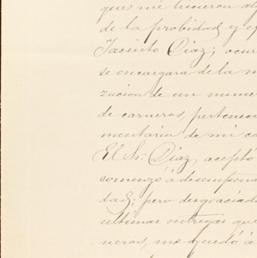 que me hicieron
de la probidad y
Jacinto Diaz; ocur
se encargara de la
zacion de un nume
de carneros pertenec
mentaria de mi
El Sr. Diaz, aceptó
comenzó á desempeña
dad; pero desgraciad
ultimas entregas que
neros, me quedó á